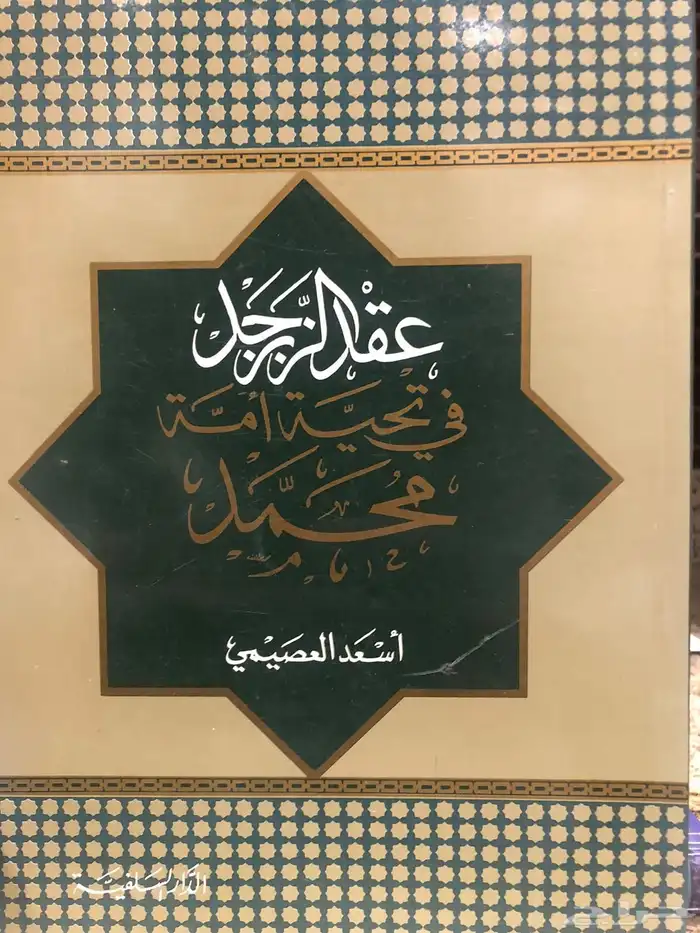 عقد الزبرجد
في تحية أمة
محمد
أسعد العصيمي
الدار السلفية
حراج